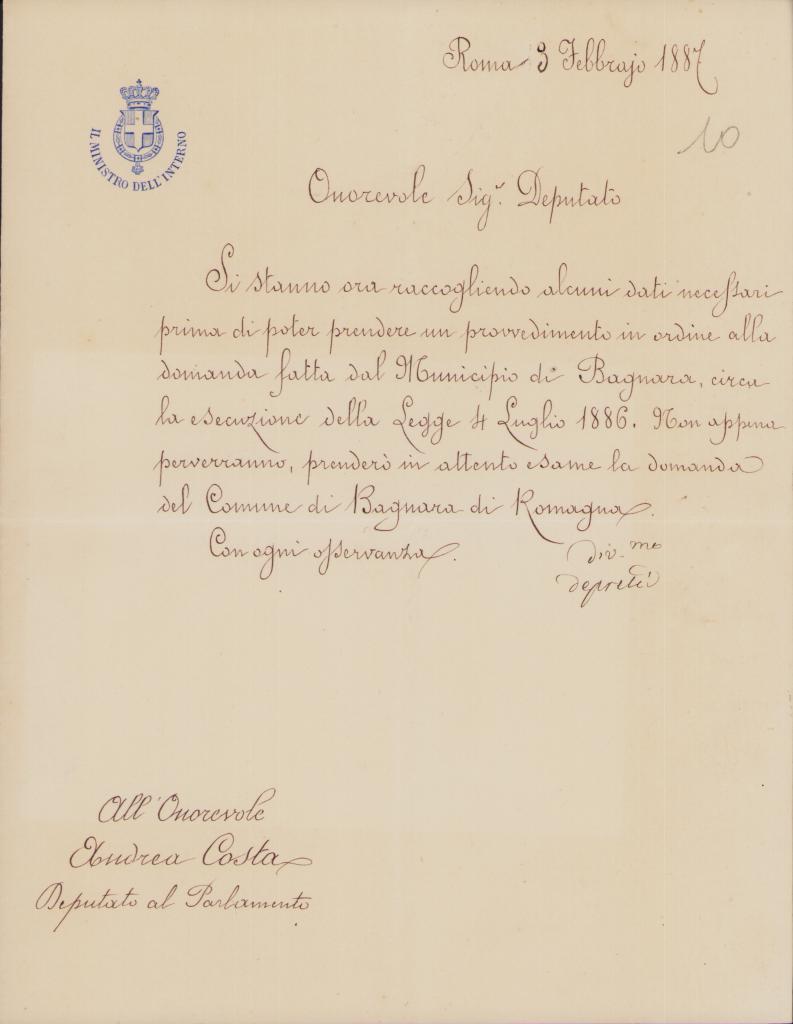 Roma 3 Febbrajo 1887
IL MINISTRO DELL'INTERNO
10
Onorevole Sigr. Deputato
Si stanno ora raccogliendo alcuni dati necessari
prima di poter prendere un provvedimento in ordine alla
domanda fatta dal Municipio di Bagnara, circa
la esecuzione della Legge 4 Luglio 1886. Non appena
perverranno, prenderò in attento esame la domanda
del Comune di Bagnara di Romagna.
Con ogni osservanza.
div.mo
depretis
All'Onorevole
Andrea Costa
Deputato al Parlamento